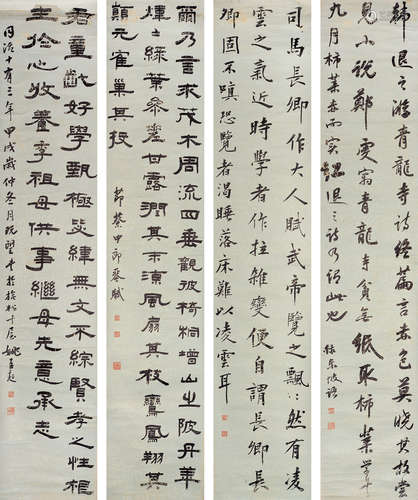 韓退之游青龍寺詩終篇言赤莫曉其故嘗
見小說鄭虔寓青龍寺貧無紙取柿葉學書
九月柿葉赤而實紅退之詩乃此也
錄東坡語
司馬長卿作大人賦武帝覽之飄〻然有凌
雲之氣近時學者作拉雜變便自謂長卿長
卿固不嗔恐覽者渴睡落床難以凌雲耳
爾乃言求茂木周流四垂觀彼椅桐增山之陂丹華
煒〻綠葉參差甘露潤其末涼風扇其枝鸞鳳翔其
顛元隺巢其枝
節蔡中郎琴賦
君童齔好學甄極毖緯無文不綜賢孝之性根
生於心收養季祖母供事繼母先意承志
同治十有三年甲戌歲仲冬月既望書於松居姚孟起